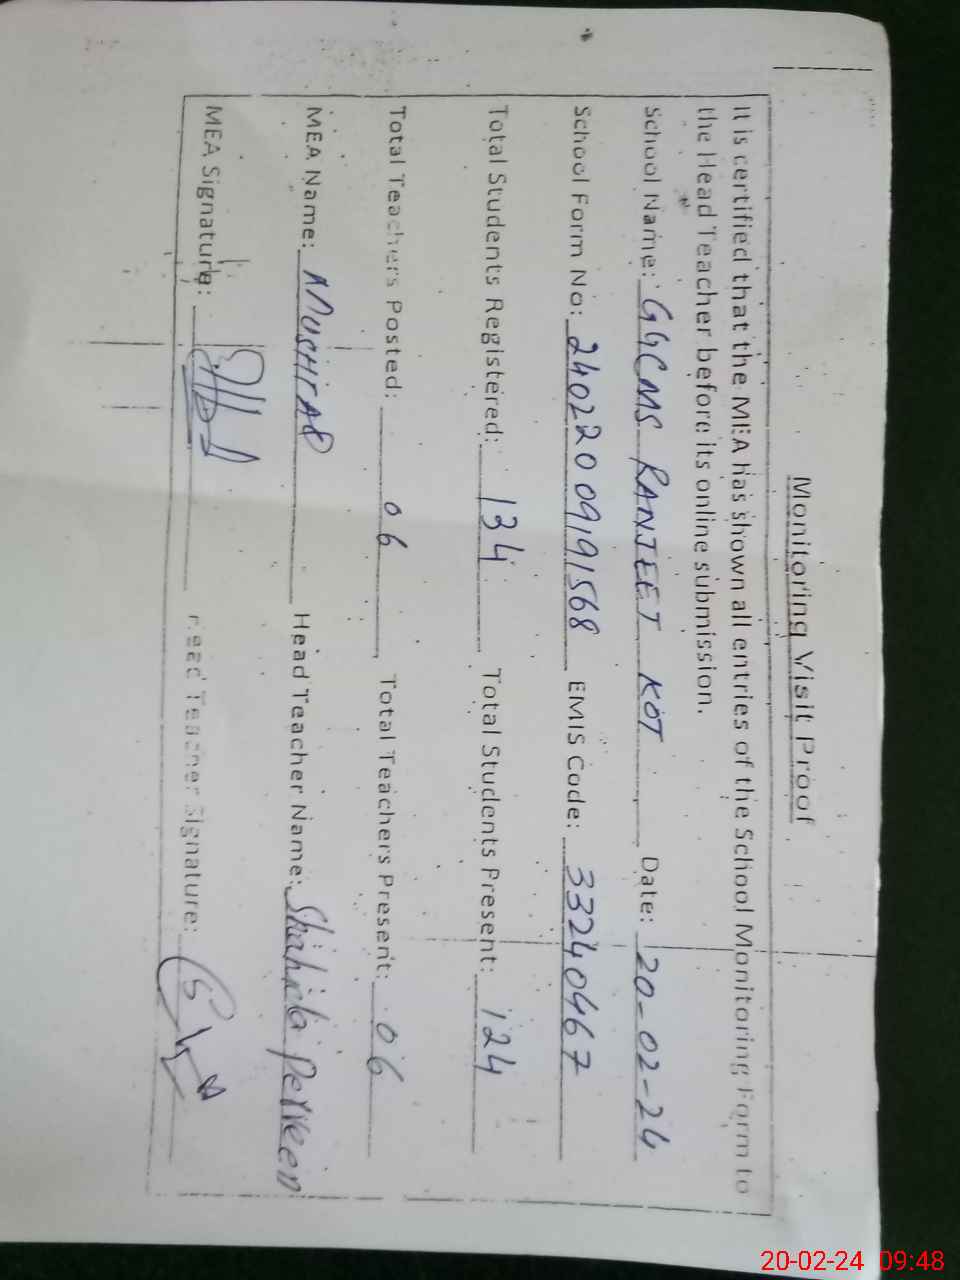 Monitoring Visit Proof
It is certified that the MEA has shown all entries of the School Monitoring Form to
the Head Teacher before its online submission.
School Name: GGCMS RANJEET KOT Date: 20-02-24
School Form No: 24022009191568 EMIS Code: 33240467
Total Students Registered: 134 Total Students Present: 124
Total Teachers Posted: 06 Total Teachers Present: 06
MEA Name: Head Teacher Name: Shahida Perveen
MEA Signature: Head Teacher Signature:
20-02-24 09:48